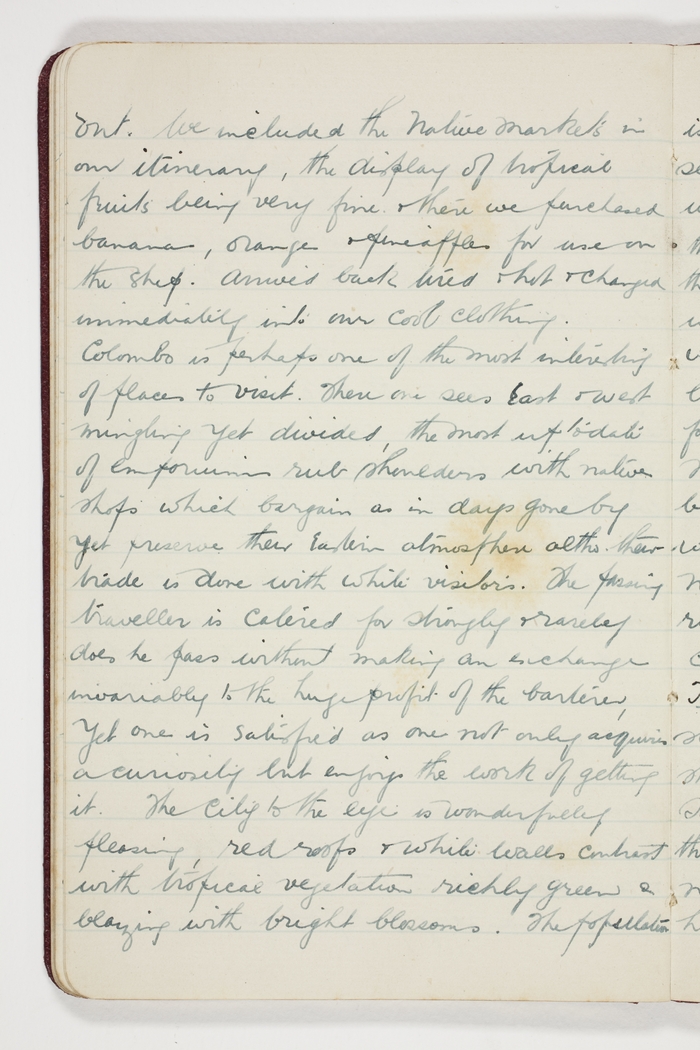 out. We included the Native Markets in
our itinerary, the display of tropical
fruits being very fine. & there we purchased
bananas, oranges & pineapples for use on
the ship. Arrived back tired & hot & changed
immediately into our cool clothing.
Colombo is perhaps one of the most interesting
of places to visit. There one sees East & West
mingling yet divided, the most up to date
of emporiums rub shoulders with native
shops which bargain as in days gone by
yet preserve their Eastern atmosphere altho. their
trade is done with white visitors. The passing
traveller is catered for strongly & rarely
does he pass without making an exchange
invariably to the huge profit of the barterer,
Yet one is satisfied as one not only acquires
a curiosity but enjoys the work of getting
it. The City to the eye is wonderfully
pleasing, red roofs & white walls contrast
with tropical vegetation richly green &
blazing with bright blossoms. The population